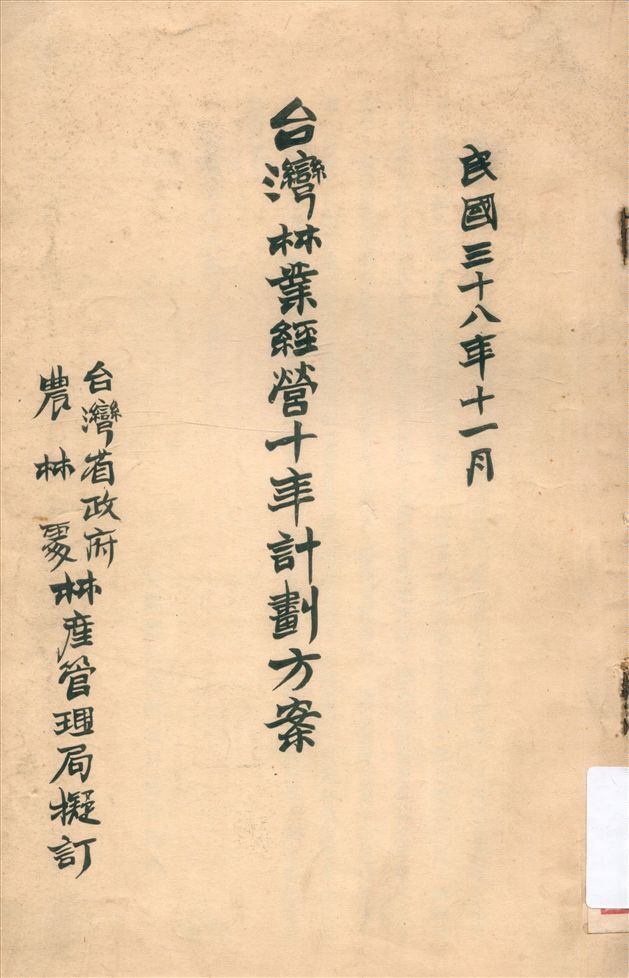 民國三十八年十一月
台灣林業經營十年計劃方案
台灣省政府
農林處
林產管理局擬訂